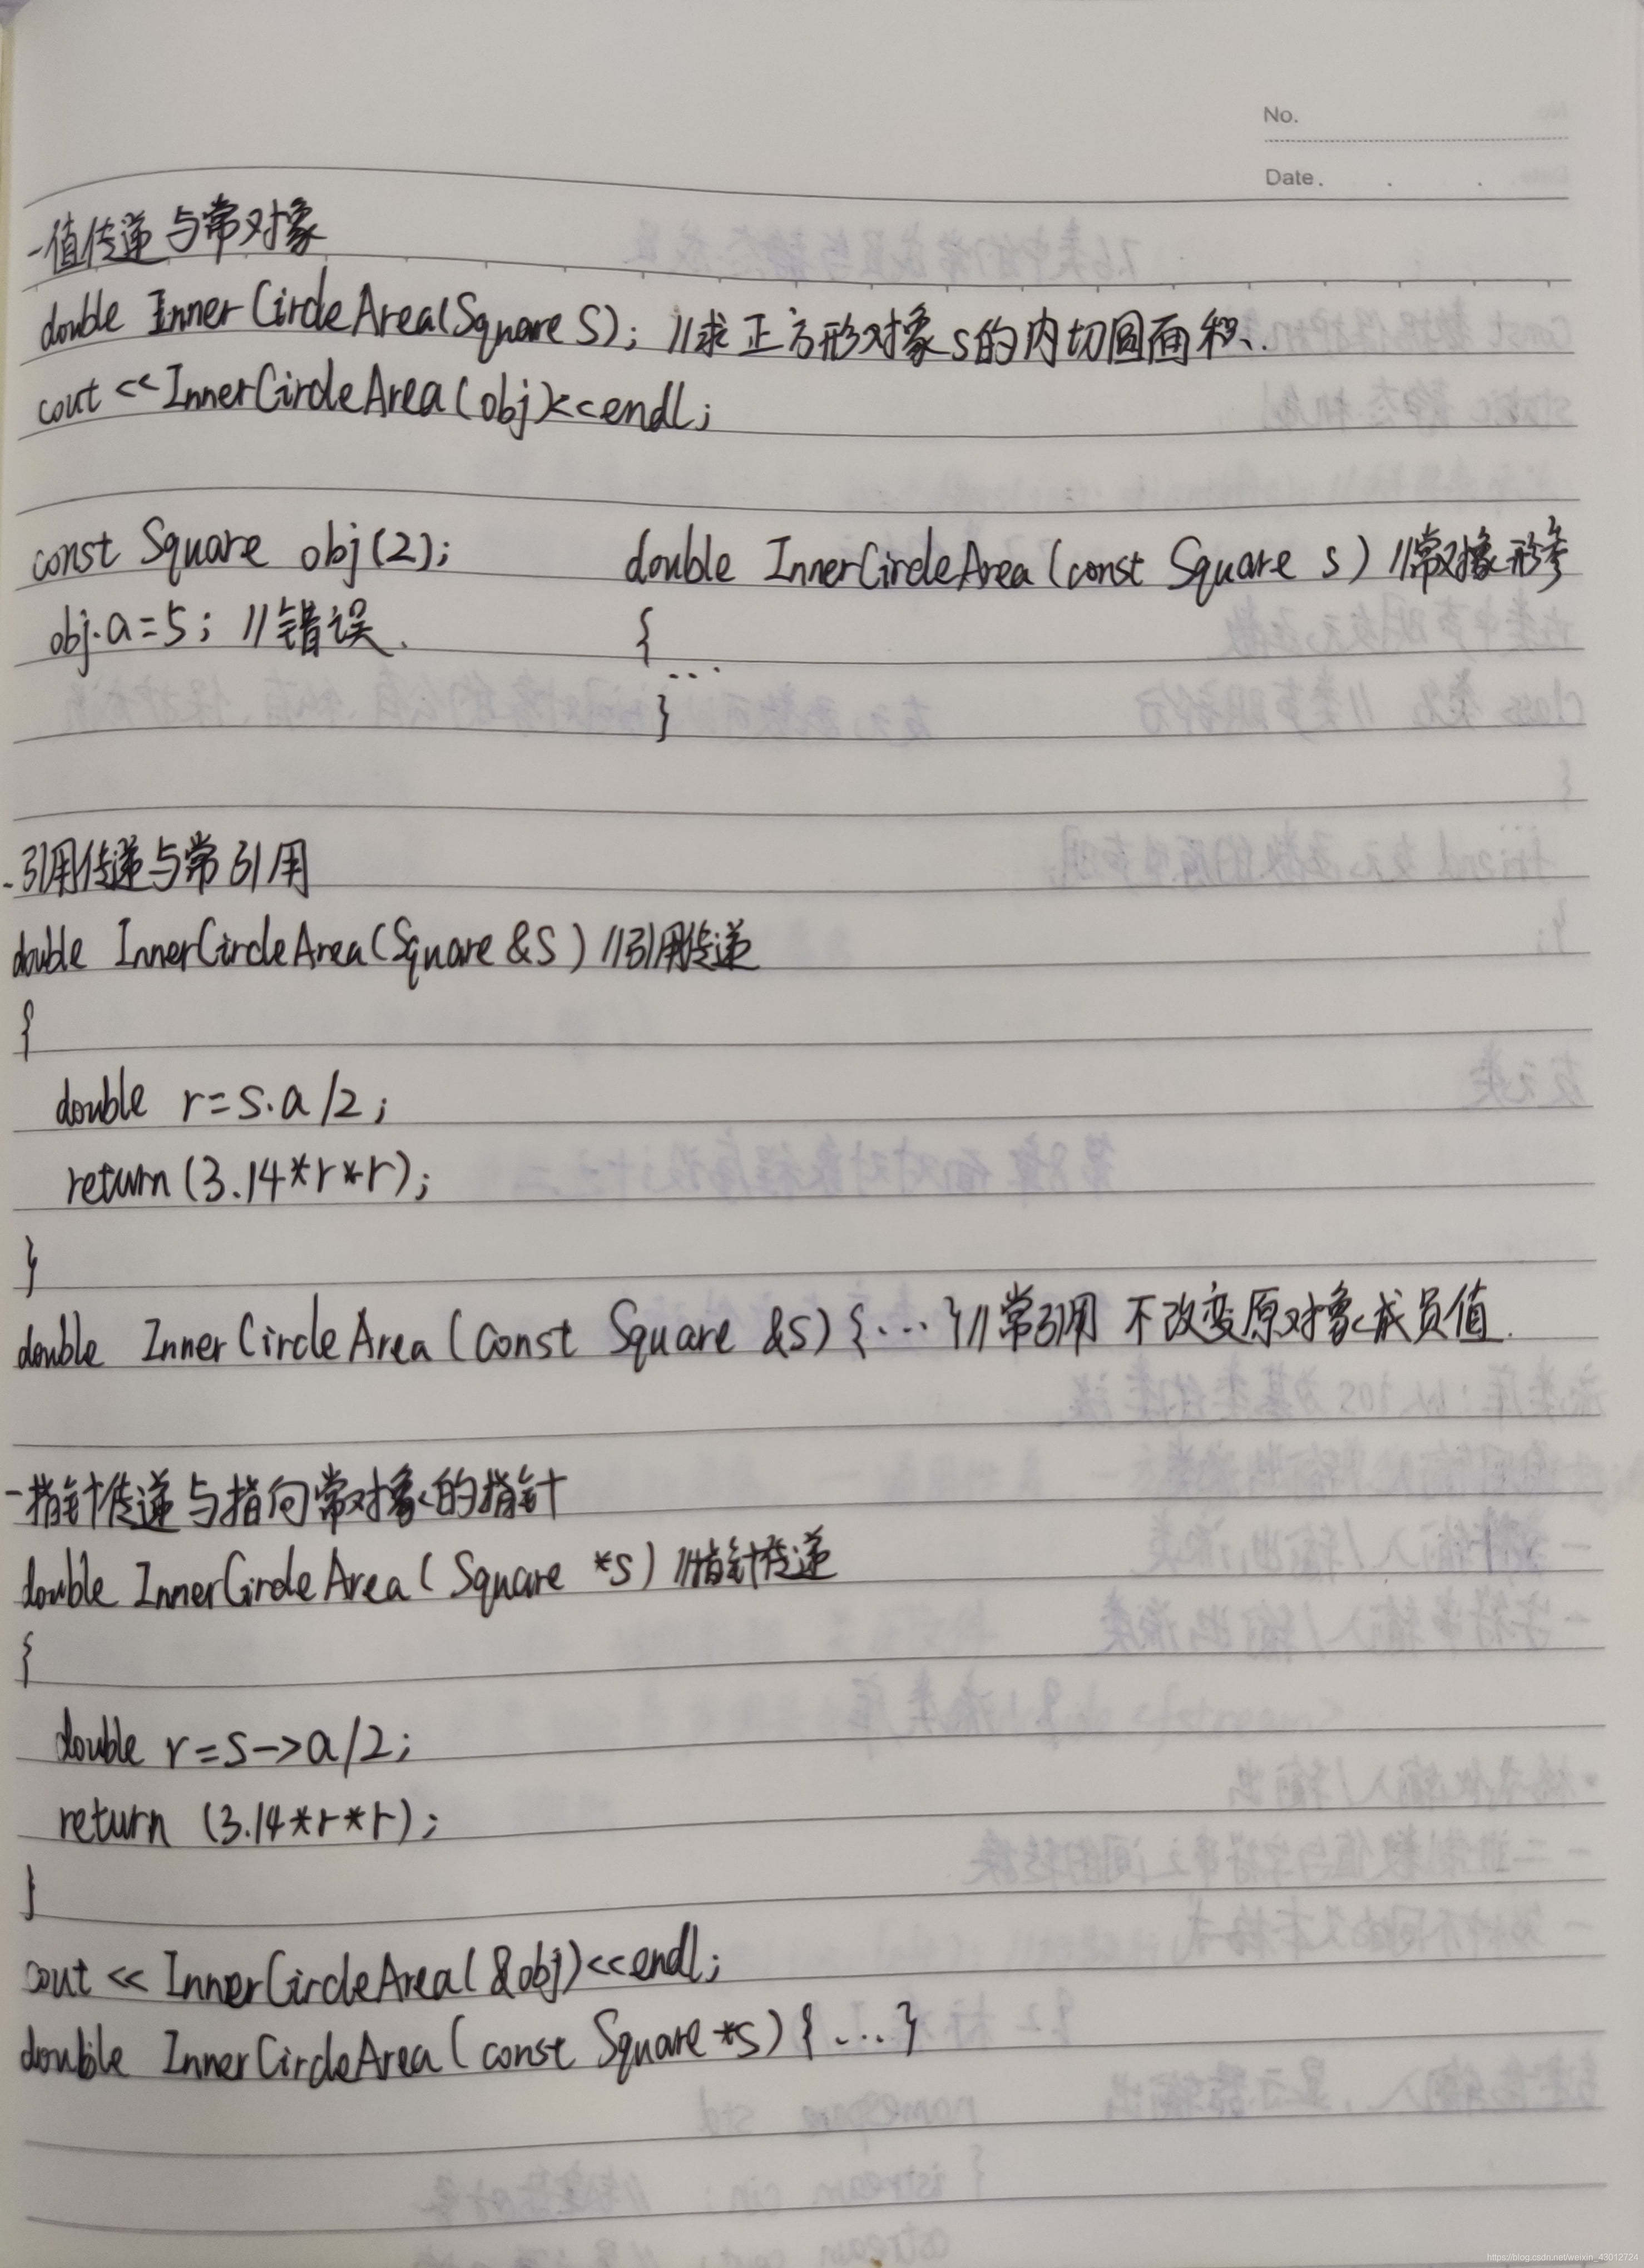 No.
Date.
-值传递与常对象
double InnerCircleArea(Square S); //求正方形对象s的内切圆面积.
cout <<InnerCircleArea(obj)<<endl;
const Square obj(2);
double InnerCircleArea(const Square s) //常对象形参
obj.a=5; //错误.
{
...
}
-引用传递与常引用
double InnerCircleArea(Square &S) //引用传递
{
double r=s.a/2;
return(3.14*r*r);
}
double InnerCircleArea(const Square &s){...}//常引用 不改变原对象成员值.
-指针传递与指向常对象的指针
double InnerCircleArea(Square *s) //指针传递
{
double r=s->a/2;
return (3.14*r*r);
}
cout << InnerCircleArea(&obj)<<endl;
double InnerCircleArea(const Square *s){...}
https://blog.csdn.net/weixin_43012724